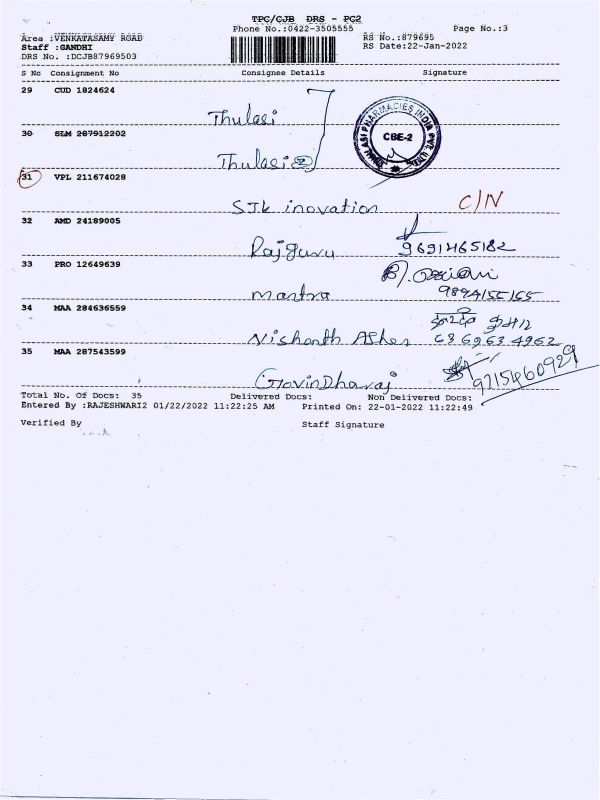 TPC/CJB DRS - PC2
Phone No.:0422-3505555 Page No.:3
Area :VENKATASAMY ROAD RS No.:879695
Staff :GANDHI RS Date:22-Jan-2022
DRS No. :DCJB87969503
S No Consignment No Consignee Details Signature
29 CUD 1824624
Thulasi
THULASI PHARMACIES INDIA PVT LTD
CBE-2
30 SLM 287912202
Thulasi
31 VPL 211674028
STK inovation C/N
32 AMD 24189005
Rajguru
33 PRO 12649639
mantra
34 MAA 284636559
Nishanth Asher 6369634962
35 MAA 287543599
GovinDharaj 9215460929
Total No. Of Docs: 35 Delivered Docs: Non Delivered Docs:
Entered By :RAJESHWARI2 01/22/2022 11:22:25 AM Printed On: 22-01-2022 11:22:49
Verified By Staff Signature